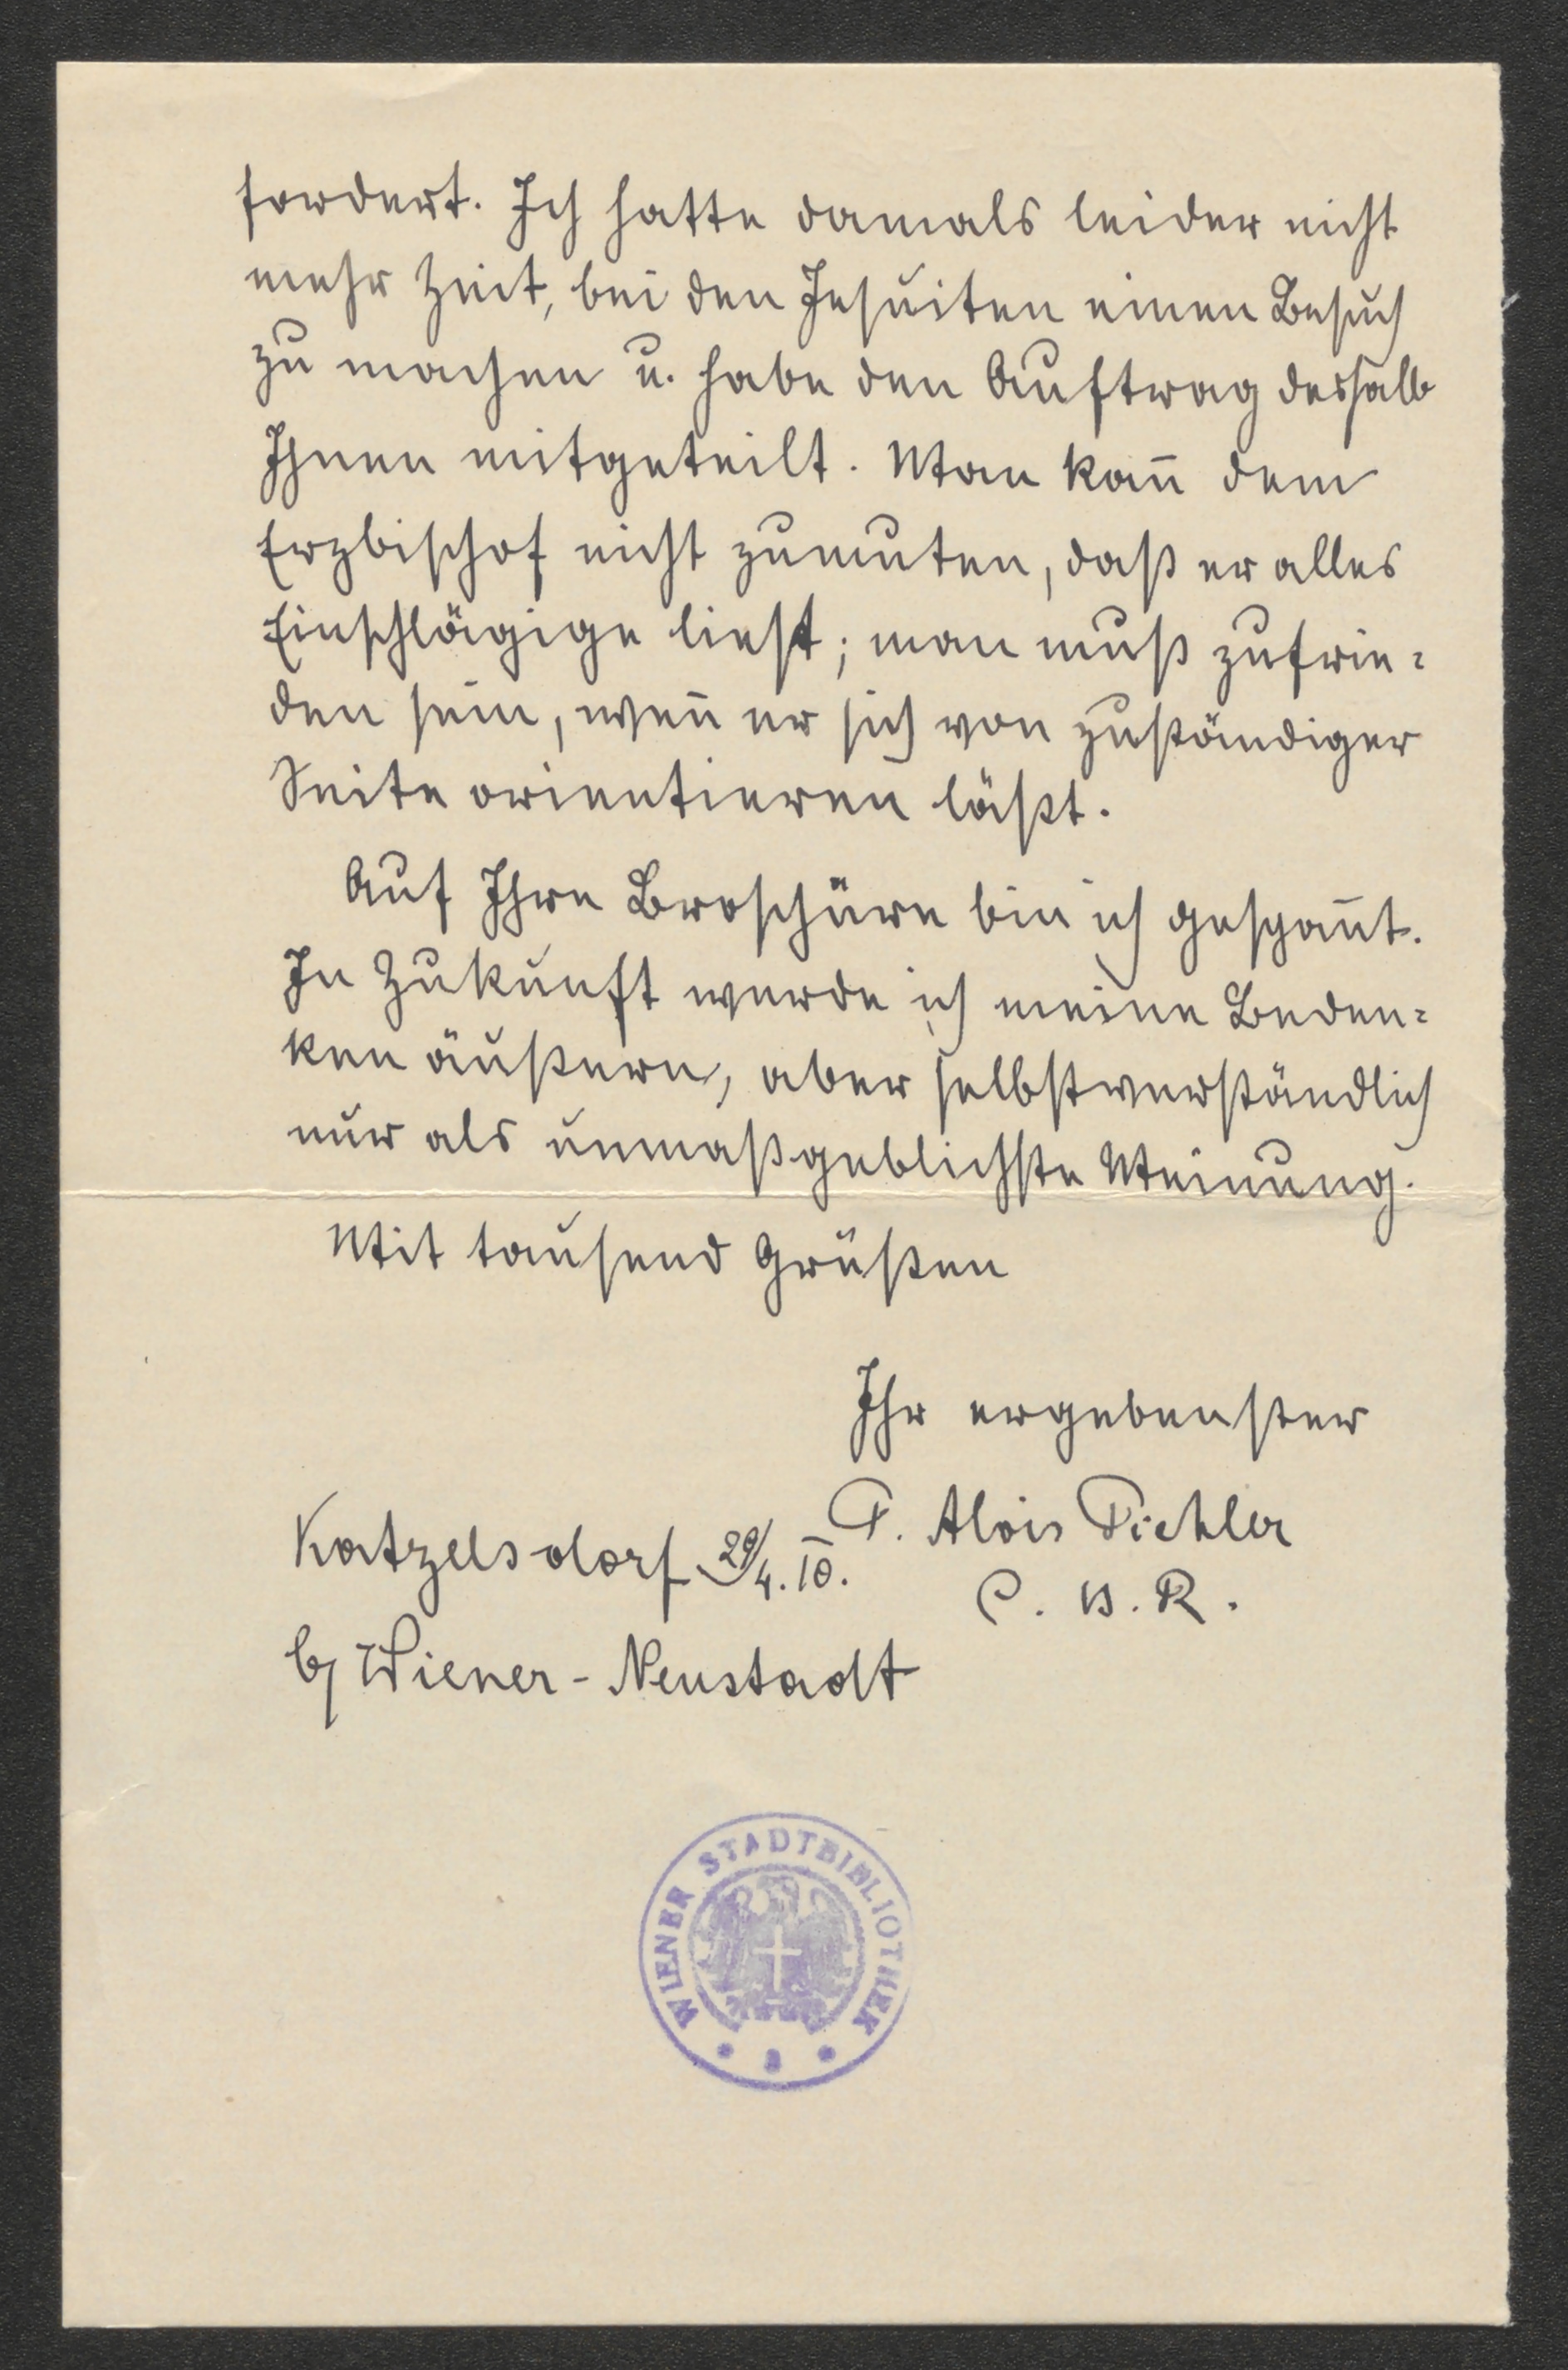 fordert. Ich hatte damals leider nicht
mehr Zeit, bei den Jesuiten einen Besuch
zu machen u. habe den Auftrag deshalb
Ihnen mitgeteilt. Man kan̅ dem
Erzbischof nicht zumuten, daß er alles
Einschlägige liest; man muß zufrie=
den sein, wen̅ er sich von zuständiger
Seite orientieren läßt.
Auf Ihre Broschüre bin ich gespan̅t.
In Zukunft werde ich meine Beden=
ken äußern, aber selbstverständlich
nur als unmaßgeblichste Meinung.
Mit tausend Grüßen
Ihr ergebenster
P. Alois Pichler
C. SS. R.
Katzelsdorf 29/4. 10.
b/ Wiener-Neustadt
WIENER STADTBIBLIOTHEK